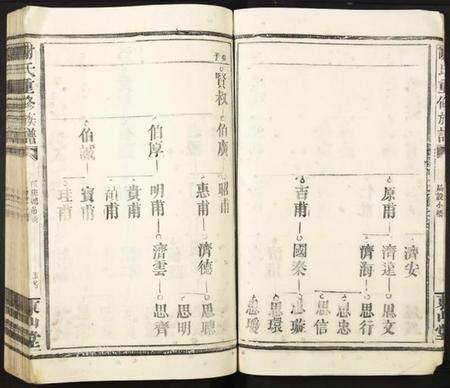 謝氏重修族譜
濟安
原甫 濟遠 思文
濟海 思行
思忠
吉甫 國泰 思信
思環
東山堂
賢叔 伯廣 昭甫
惠甫 濟德 思聰
思明
伯厚 明甫 濟雲 思齊
貴甫
伯誠 寶甫
謝氏重修族譜
東山堂